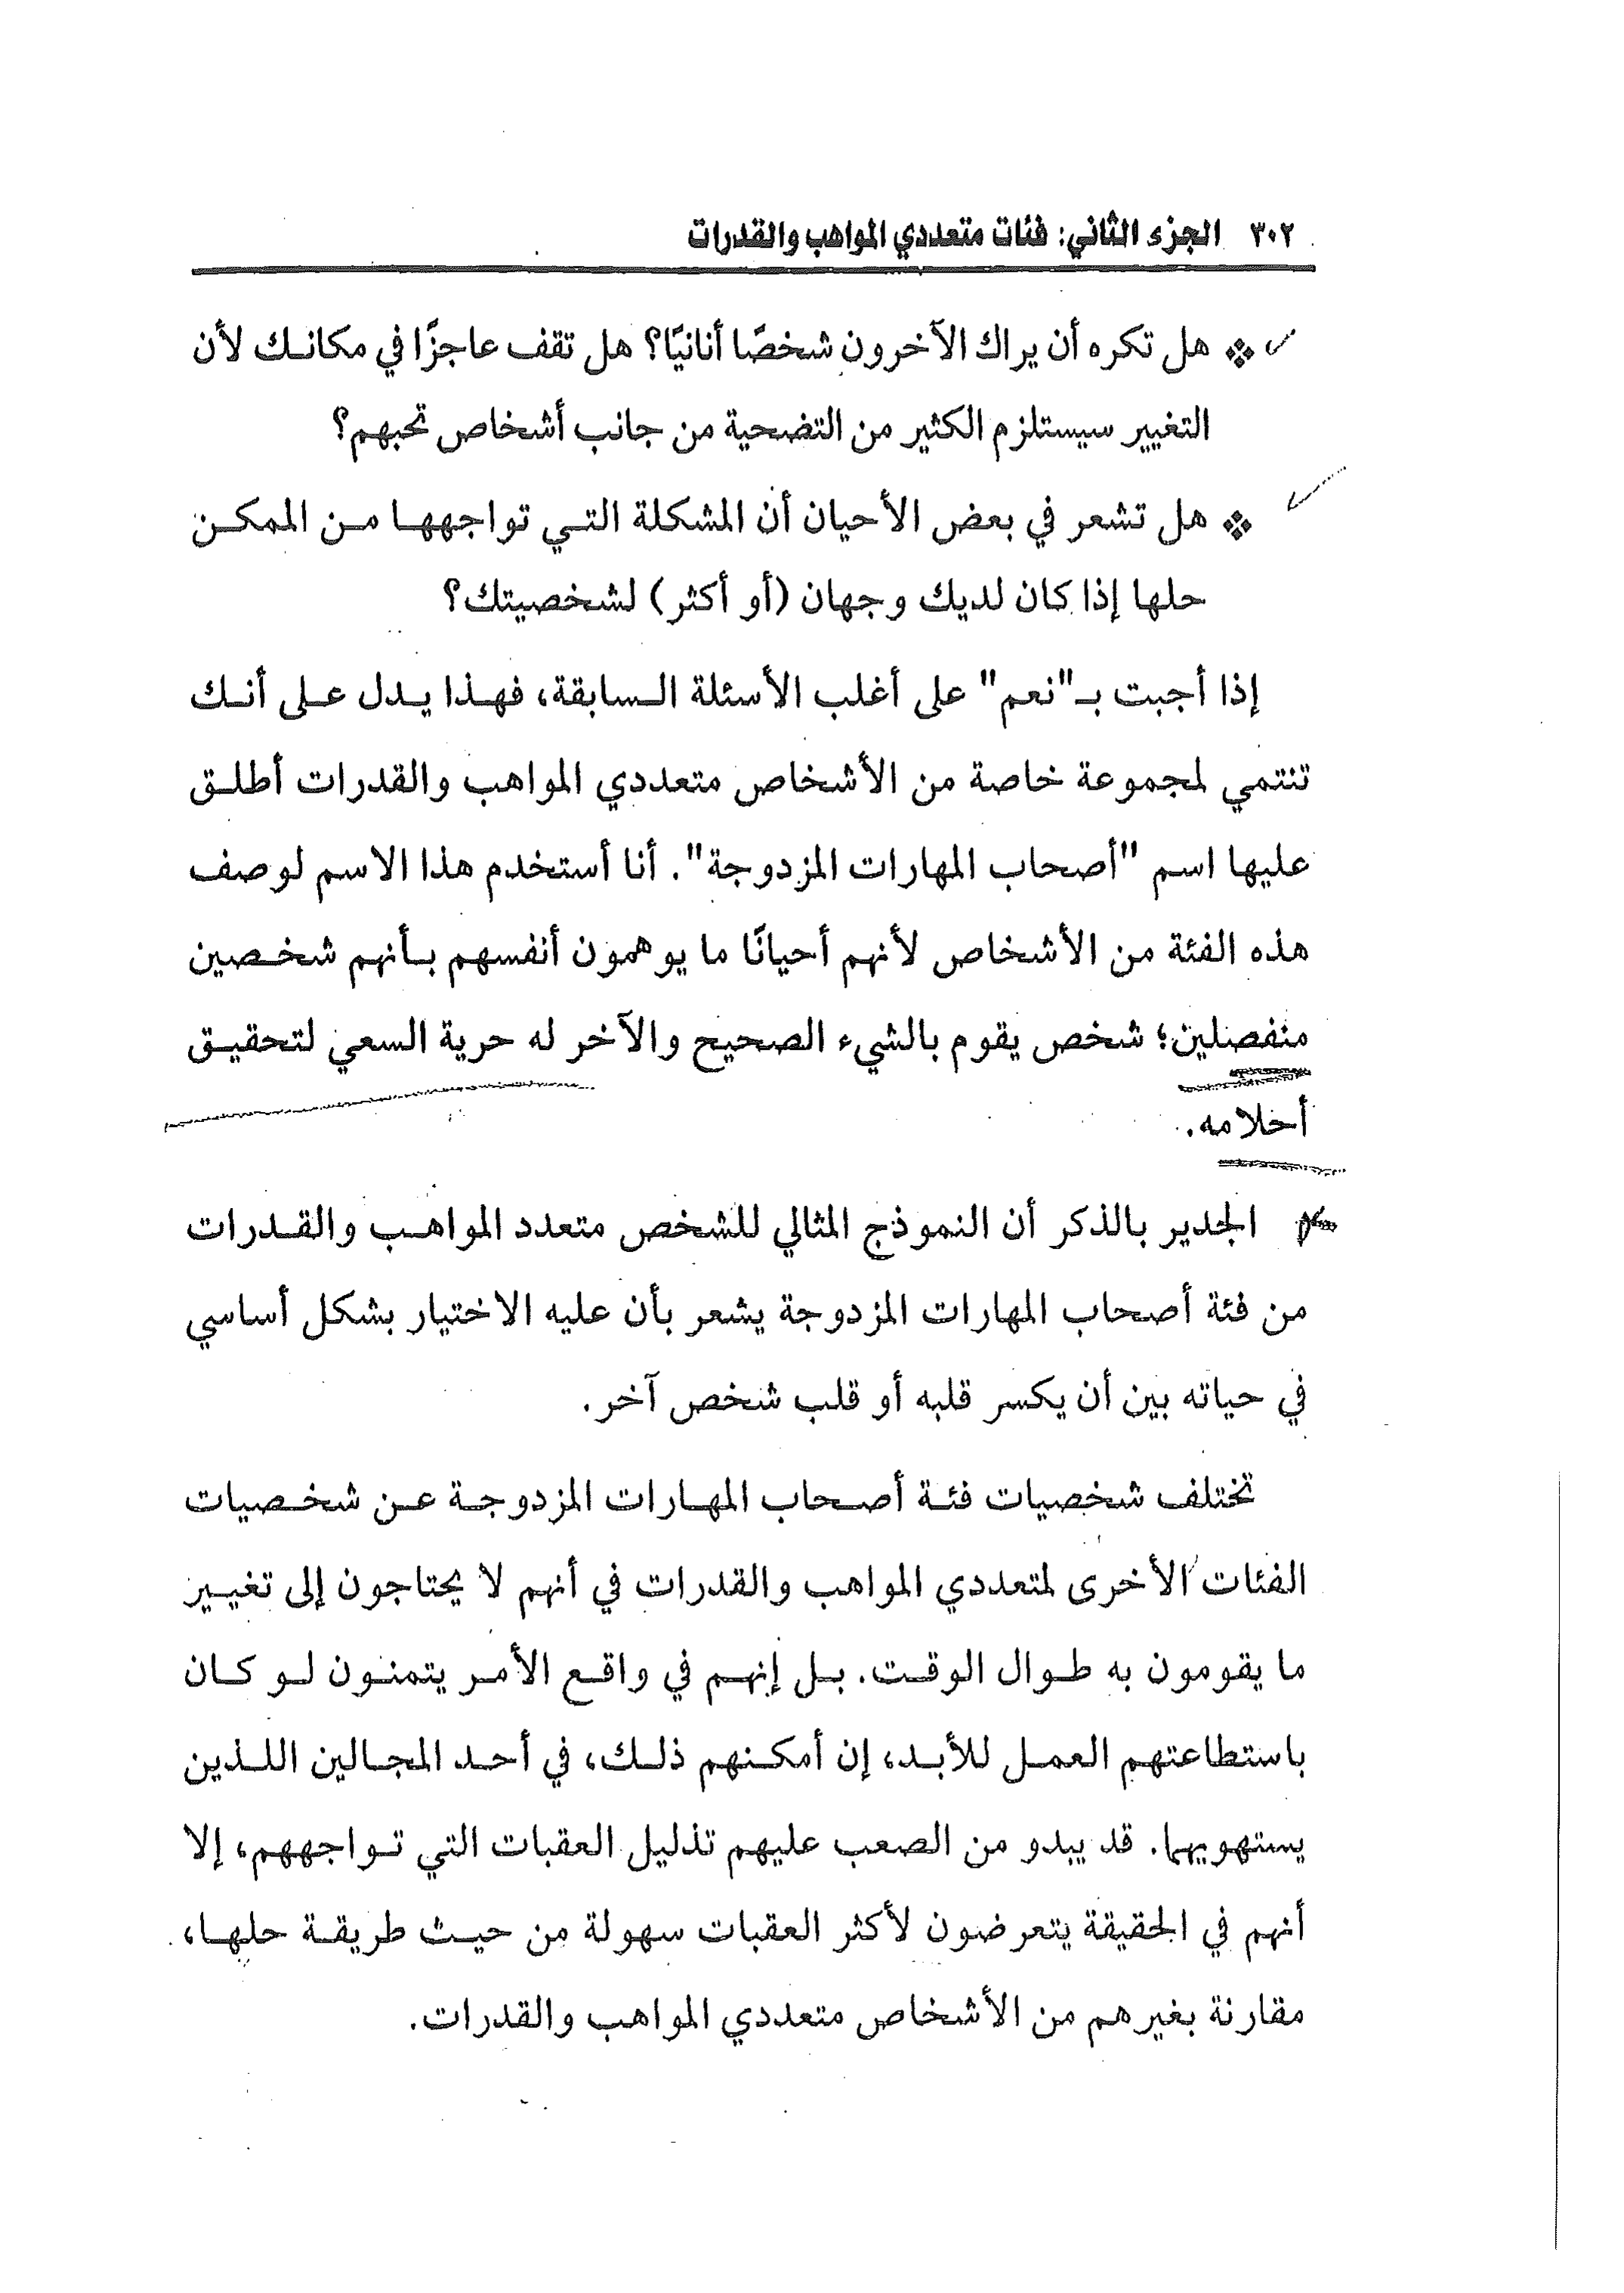 ٣٠٢ الجزء الثاني: فئات متعددي المواهب والقدرات
❖ هل تكره أن يراك الآخرون شخصًا أنانيًا؟ هل تقف عاجزًا في مكانك لأن
التغيير سيستلزم الكثير من التضحية من جانب أشخاص تحبهم؟
❖ هل تشعر في بعض الأحيان أن المشكلة التي تواجهها من الممكن
حلها إذا كان لديك وجهان (أو أكثر) لشخصيتك؟
إذا أجبت بـ"نعم" على أغلب الأسئلة السابقة، فهذا يدل على أنك
تنتمي لمجموعة خاصة من الأشخاص متعددي المواهب والقدرات أطلق
عليها اسم "أصحاب المهارات المزدوجة". أنا أستخدم هذا الاسم لوصف
هذه الفئة من الأشخاص لأنهم أحيانًا ما يوهمون أنفسهم بأنهم شخصين
منفصلين؛ شخص يقوم بالشيء الصحيح والآخر له حرية السعي لتحقيق
أحلامه.
الجدير بالذكر أن النموذج المثالي للشخص متعدد المواهب والقدرات
من فئة أصحاب المهارات المزدوجة يشعر بأن عليه الاختيار بشكل أساسي
في حياته بين أن يكسر قلبه أو قلب شخص آخر.
تختلف شخصيات فئة أصحاب المهارات المزدوجة عن شخصيات
الفئات الأخرى لمتعددي المواهب والقدرات في أنهم لا يحتاجون إلى تغيير
ما يقومون به طوال الوقت. بل إنهم في واقع الأمر يتمنون لو كان
باستطاعتهم العمل للأبد، إن أمكنهم ذلك، في أحد المجالين اللذين
يستهويهما. قد يبدو من الصعب عليهم تذليل العقبات التي تواجههم، إلا
أنهم في الحقيقة يتعرضون لأكثر العقبات سهولة من حيث طريقة حلها،
مقارنة بغيرهم من الأشخاص متعددي المواهب والقدرات.